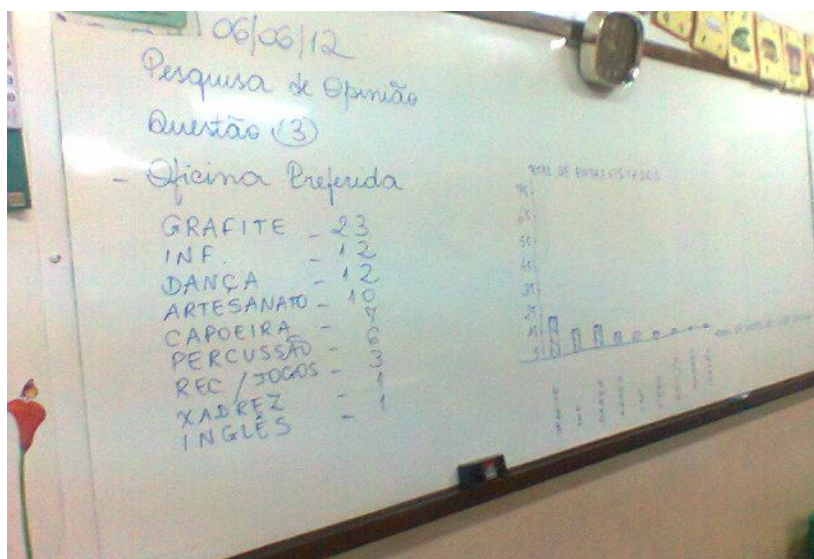 06/06/12
Pesquisa de Opinião
Questão (3)
- Oficina Preferida
GRAFITE - 23
INF. - 12
DANÇA - 12
ARTESANATO - 10
CAPOEIRA - 7
PERCUSSÃO - 6
REC / JOGOS - 3
XADREZ - 1
INGLÊS - 1
TOTAL DE ENTREVISTADOS
75
65
55
45
35
25
15
5